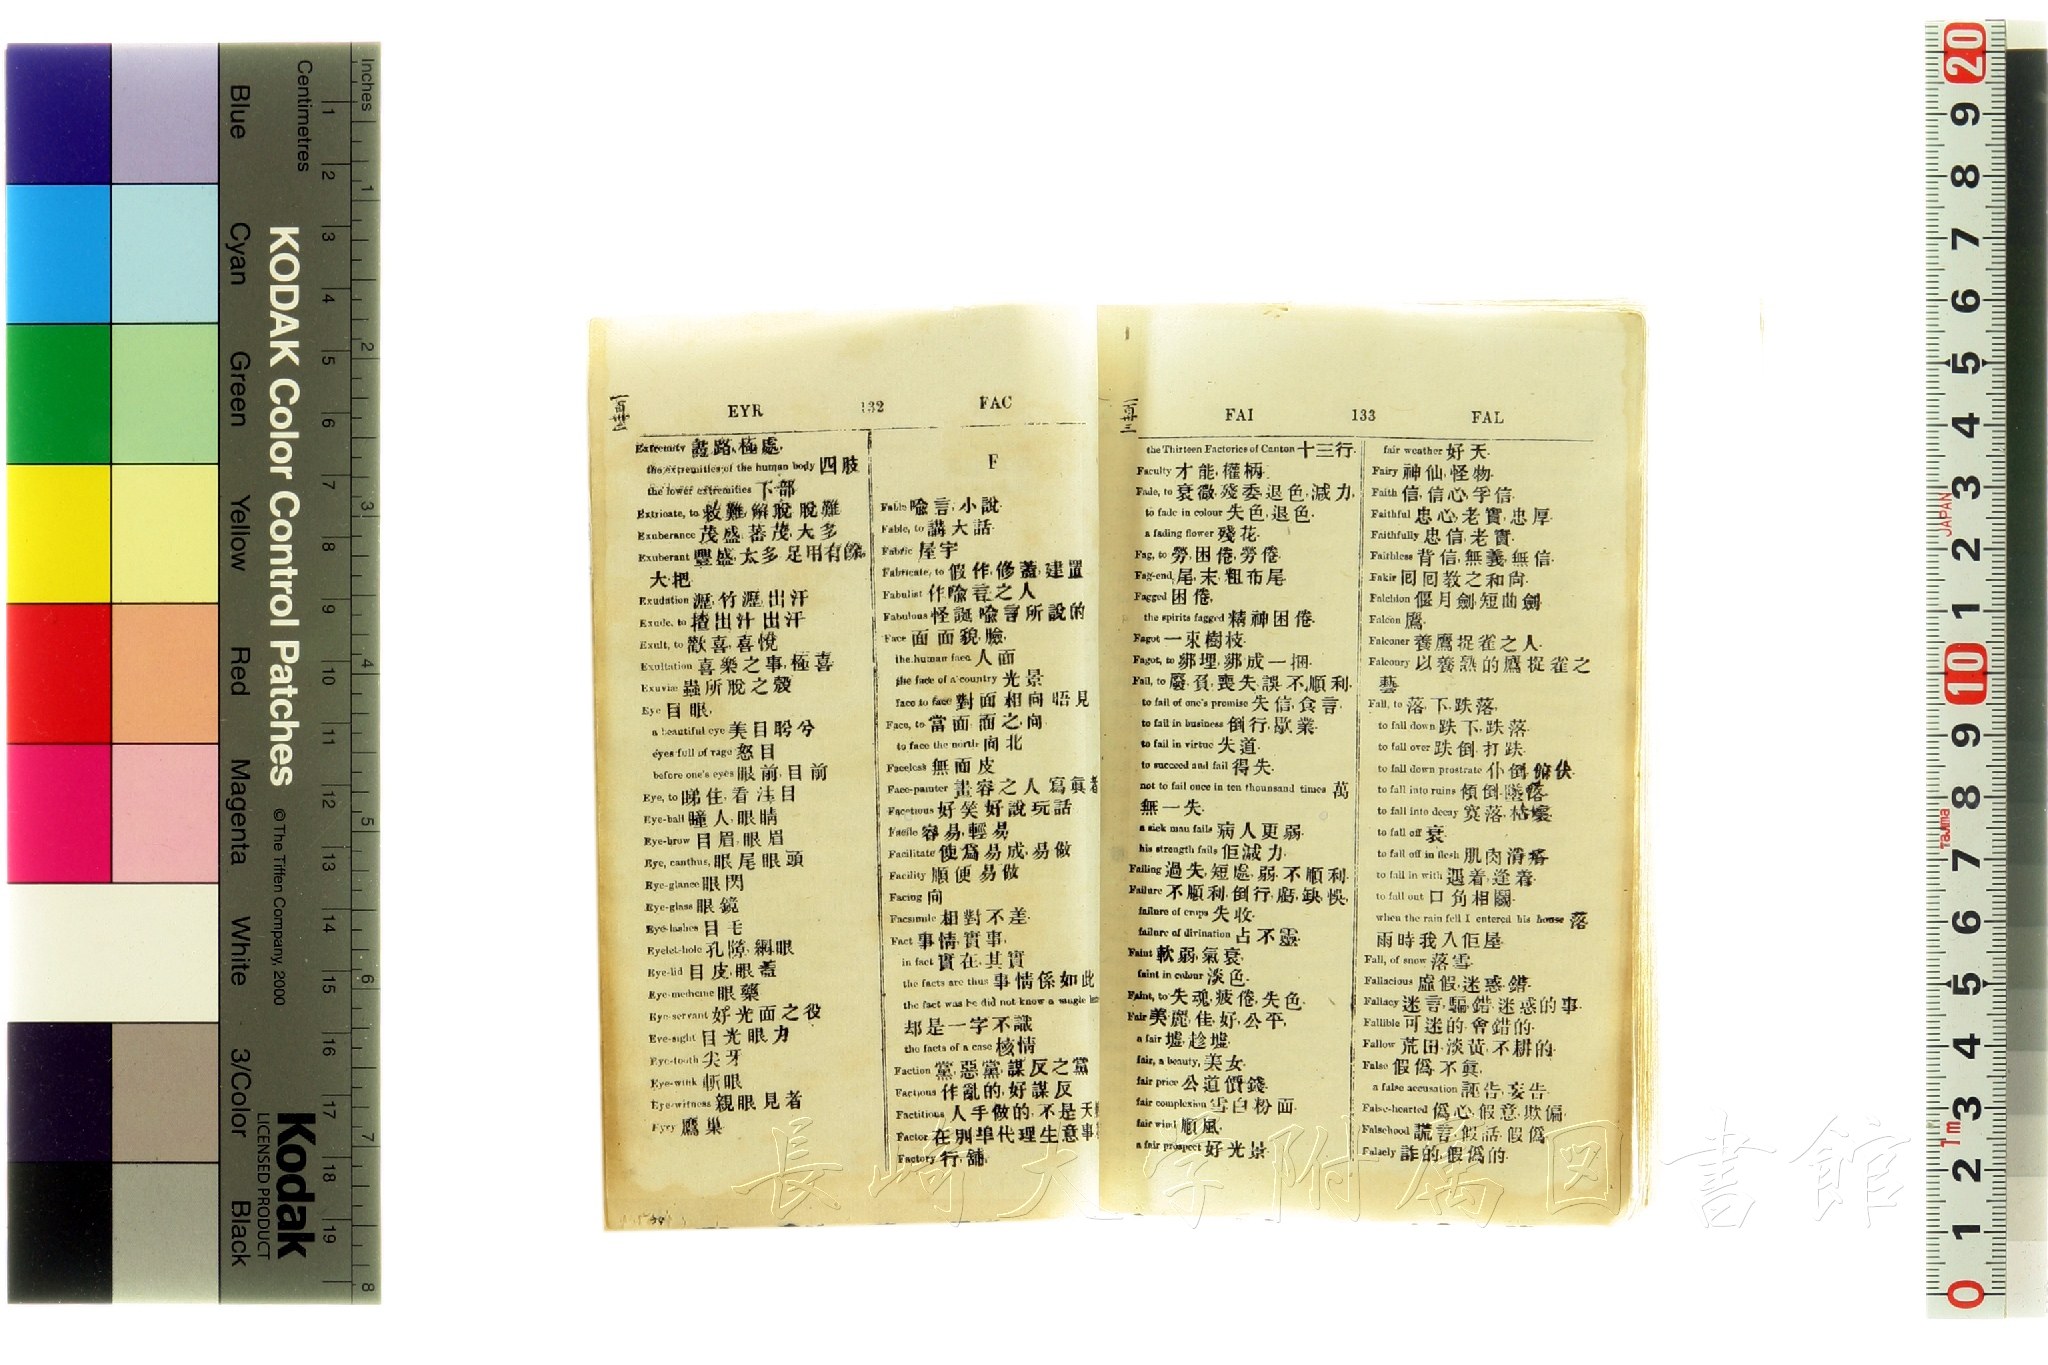 Inches
Centimetres
KODAK Color Control Patches
© The Tiffen Company, 2000
Kodak
LICENSED PRODUCT
Blue
Cyan
Green
Yellow
Red
Magenta
White
3/Color
Black
EYR 132 FAC
Extremity 極處
the extremities of the human body 四肢
the lower extremities 下部
Extricate, to 救難, 解脫, 脫難
Exuberance 茂盛, 蕃茂, 大多
Exuberant 豐盛, 太多, 足用有餘,
大把
Exudation 瀝, 竹瀝, 出汗
Exude, to 揸出汁, 出汗
Exult, to 歡喜, 喜悅
Exultation 喜樂之事, 極喜
Exuviæ 蟲所脫之殼
Eye 目, 眼,
a beautiful eye 美目盼兮
eyes full of rage 怒目
before one's eyes 眼前, 目前
Eye, to 睇住, 看, 注目
Eye-ball 瞳人, 眼睛
Eye-brow 目眉, 眼眉
Eye, canthus, 眼尾, 眼頭
Eye-glance 眼閃
Eye-glass 眼鏡
Eye-lashes 目毛
Eyelet-hole 孔隙, 網眼
Eye-lid 目皮, 眼蓋
Eye-medicine 眼藥
Eye-servant 好光面之役
Eye-sight 目光, 眼力
Eye-tooth 尖牙
Eye-wink 斬眼
Eye-witness 親眼見者
Eyry 鷹巢
F
Fable 喩言, 小說
Fable, to 講大話
Fabric 屋宇
Fabricate, to 假作, 修蓋, 建置
Fabulist 作喩言之人
Fabulous 怪誕, 喩言所說的
Face 面, 面貌, 臉,
the human face 人面
the face of a country 光景
face to face 對面, 相向, 晤見
Face, to 當面, 面之, 向
to face the north 向北
Faceless 無面皮
Face-painter 畫容之人, 寫眞者
Facetious 好笑, 好說玩話
Facile 容易, 輕易
Facilitate 使爲易成, 易做
Facility 順便, 易做
Facing 向
Facsimile 相對不差
Fact 事情, 實事,
in fact 實在, 其實
the facts are thus 事情係如此
the fact was he did not know a single
却是一字不識
the facts of a case 核情
Faction 黨, 惡黨, 謀反之黨
Factious 作亂的, 好謀反
Factitious 人手做的, 不是天
Factor 在別埠代理生意事
Factory 行, 舖,
FAI 133 FAL
the Thirteen Factories of Canton 十三行
Faculty 才能, 權柄
Fade, to 衰微, 殘委, 退色, 減力
to fade in colour 失色, 退色
a fading flower 殘花
Fag, to 勞, 困倦, 勞倦
Fag-end, 尾, 末, 粗布尾
Fagged 困倦,
the spirits fagged 精神困倦
Fagot 一束樹枝
Fagot, to 綁埋, 綁成一捆
Fail, to 廢, 負, 喪失, 誤, 不順利
to fail of one's promise 失信, 食言
to fail in business 倒行, 歇業
to fail in virtue 失道
to succeed and fail 得失
not to fail once in ten thousand times 萬
無一失
a sick man fails 病人更弱
his strength fails 佢減力
Failing 過失, 短處, 弱, 不順利
Failure 不順利, 倒行, 虧, 缺, 悞,
failure of crops 失收
failure of divination 占不靈
Faint 軟弱, 氣衰
faint in colour 淡色
Faint, to 失魂, 疲倦, 失色
Fair 美, 麗, 佳, 好, 公平,
a fair 墟, 趁墟
fair, a beauty, 美女
fair price 公道價錢
fair complexion 雪白粉面
fair wind 順風
a fair prospect 好光景
fair weather 好天
Fairy 神仙, 怪物
Faith 信, 信心, 孚信
Faithful 忠心, 老實, 忠厚
Faithfully 忠信, 老實
Faithless 背信, 無義, 無信
Fakir 囘囘教之和尙
Falchion 偃月劍, 短曲劍
Falcon 鷹
Falconer 養鷹捉雀之人
Falconry 以養熟的鷹捉雀之
藝
Fall, to 落, 下, 跌落
to fall down 跌下, 跌落
to fall over 跌倒, 打跌
to fall down prostrate 仆倒, 俯伏
to fall into ruins 傾倒, 墜落
to fall into decay 寞落, 枯壞
to fall off 衰
to fall off in flesh 肌肉消瘠
to fall in with 遇着, 逢着
to fall out 口角相鬭
when the rain fell I entered his house 落
雨時我入佢屋
Fall, of snow 落雪
Fallacious 虛假, 迷惑, 錯
Fallacy 迷言, 騙錯, 迷惑的事
Fallible 可迷的, 會錯的
Fallow 荒田, 淡黃, 不耕的
False 假, 僞, 不眞,
a false accusation 誣告, 妄告
False-hearted 僞心, 假意, 欺偏
Falsehood 謊言, 假話, 假僞
Falsely 詐的, 假僞的
長崎大学附属図書館
JAPAN
Tajima
1m